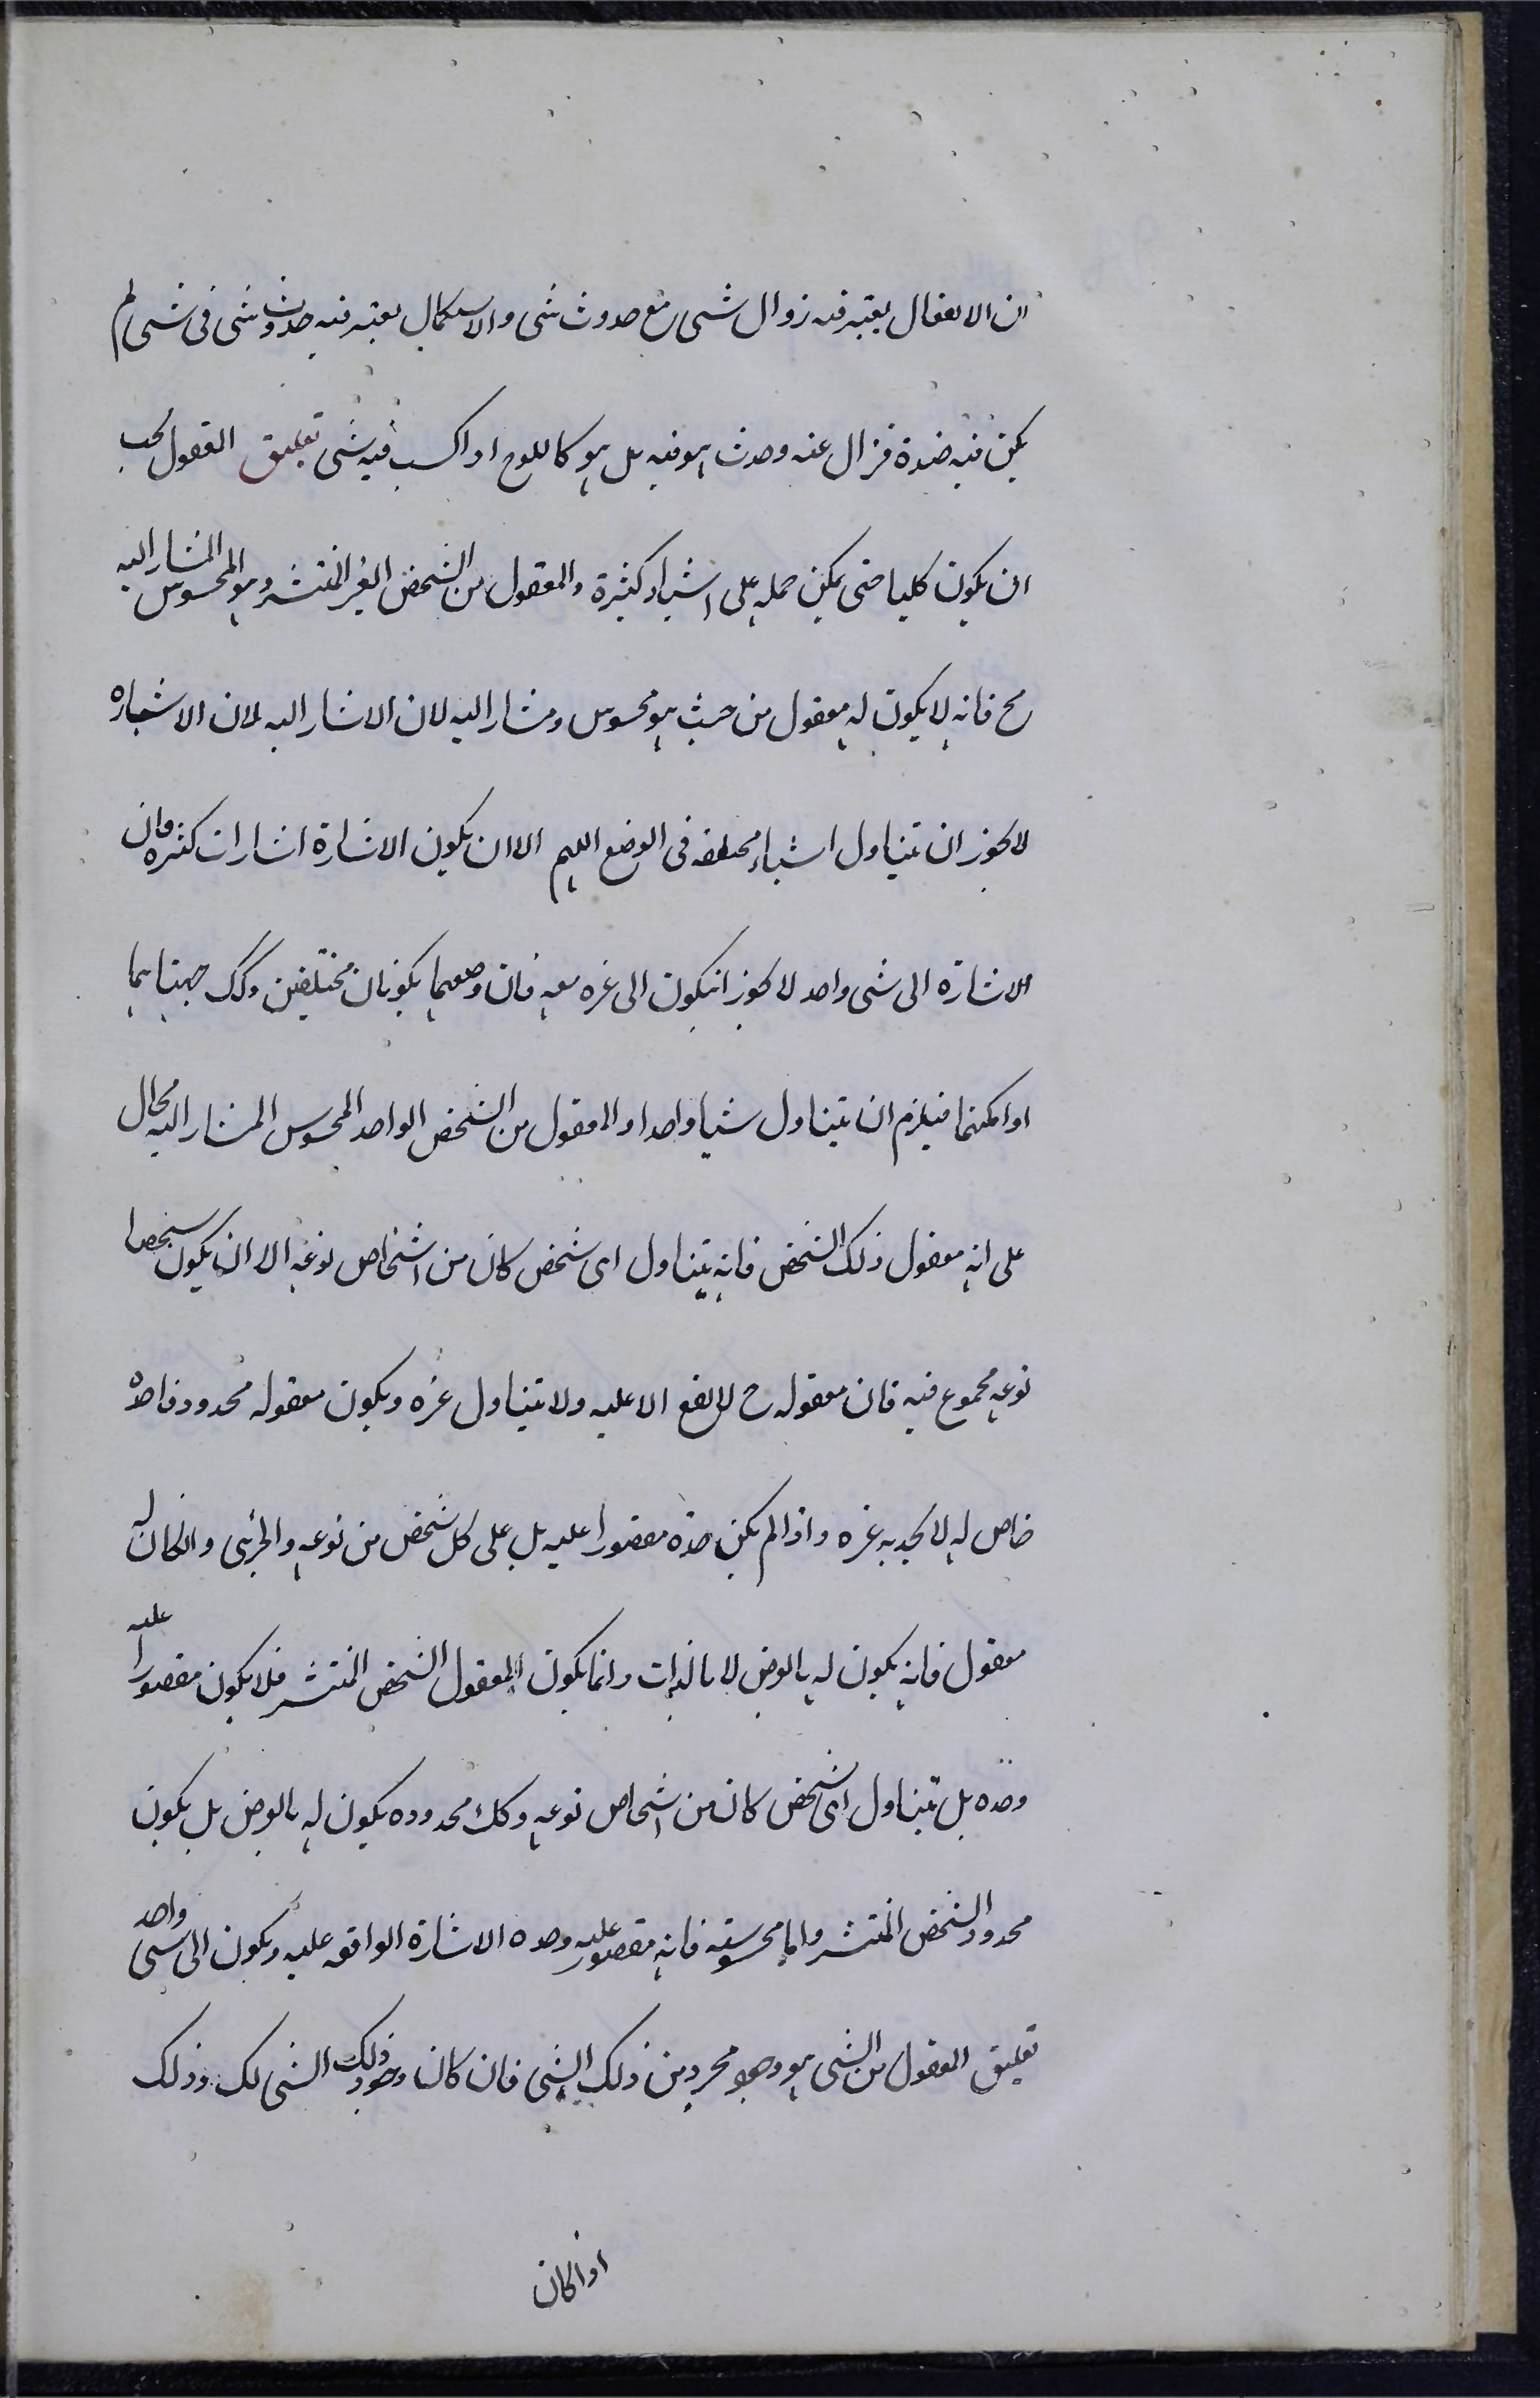 ان الانفعال يعتبر فيه زوال شی مع حدوث شی والاستكمال يعتبر فيه حدوث شی فی شی لم
يكن فيه ضده فزال عنه وحدث هو فيه بل هو كاللوح اذا كسب فيه شی تعليق المعقول يجب
ان يكون كليا حتى يمكن حمله على اشياء كثيرة والمعقول من الشخص الغير المنتشر وهو المحسوس المشار اليه
ح فانه لا يكون له معقول من حيث هو محسوس ومشار اليه لان الاشار اليه لان الاشاره
لا يجوز ان تتناول اشياء مختلفه فی الوضع اللهم الا ان يكون الاشارة اشارات كثيره وان
الاشارة الى شی واحد لا يجوز انيكون الى غيره معه فان وضعهما يكونان مختلفين وكك جهتاهما
او امكنتهما فيلزم ان تتناول شيئا واحدا والمعقول من الشخص الواحد المحسوس المشار اليه محال
على انه معقول ذلك الشخص فانه يتناول ای شخص كان من اشخاص نوعه الا ان يكون شخصا
نوعه مجموع فيه فان معقوله ح لا يقع الا عليه ولا يتناول غيره ويكون معقوله محدود فاحده
خاص له لا يحد به غيره واذا لم يكن حده مقصورا عليه بل على كل شخص من نوعه والجزئی وانكان له
معقول فانه يكون له بالعرض لا بالذات وانما يكون المعقول الشخص المنتشر فلا يكون مقصورا عليه
وحده بل تتناول ای شخص كان من اشخاص نوعه وكك محدوده يكون له بالعرض بل يكون
محدود الشخص المنتشر واما محسوسيته فانه مقصور عليه وحده الاشارة الواقعه عليه ويكون الى شی واحد
تعليق المعقول من الشی هو وجود مجرد من ذلك الشی فان كان وجود ذلك الشی لك وذلك
اذا كان